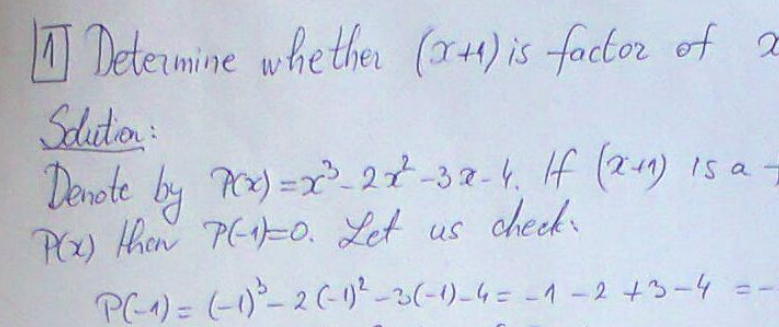 1 Determine whether (x+1) is factor of x
Solution:
Denote by P(x) = x³ - 2x² - 3x - 4. If (x+1) is a
P(x) then P(-1)=0. Let us check:
P(-1) = (-1)³ - 2(-1)² - 3(-1) - 4 = -1 - 2 + 3 - 4 = -